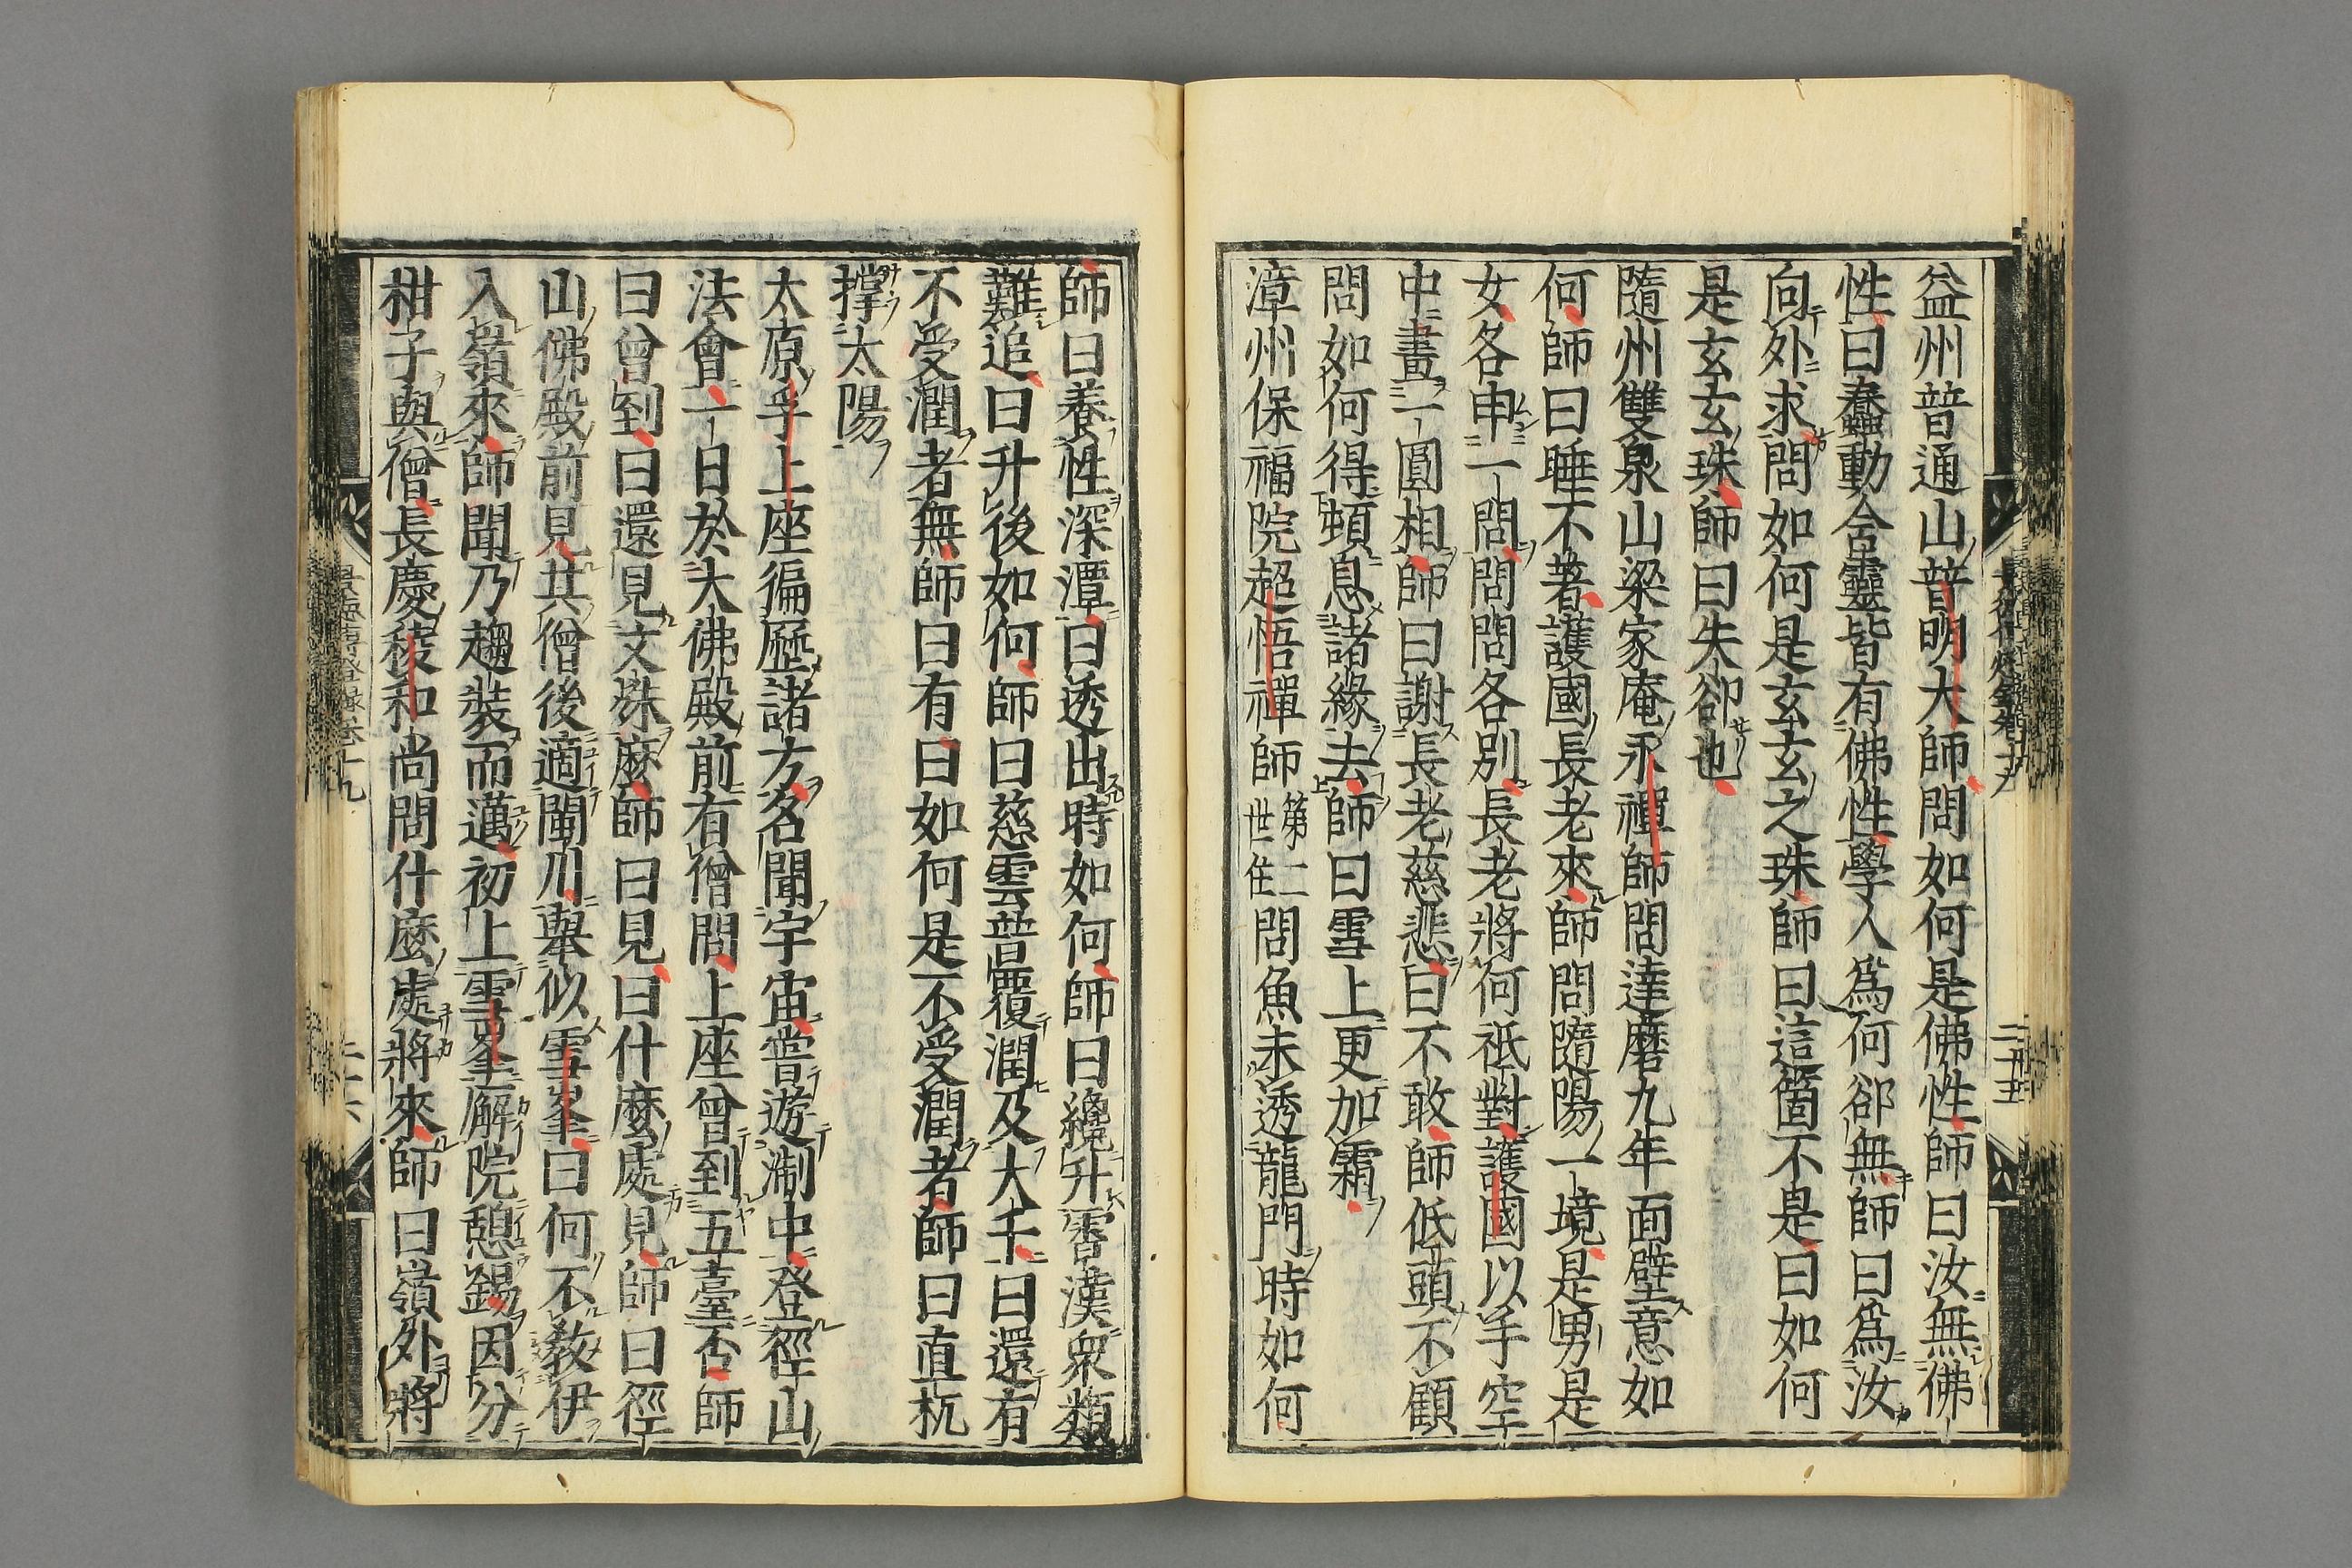 益州普通山普明大師問如何是佛性師曰汝無佛
性曰蠢動含靈皆有佛性學人爲何卻無師曰爲汝
向外求問如何是玄玄之珠師曰這箇不是曰如何
是玄玄珠師曰失卻也
隨州雙泉山梁家庵永禪師問達磨九年面壁意如
何師曰睡不著護國長老來師問隨陽一境是男是
女各申一問問問各別長老將何祇對護國以手空
中畫一圓相師曰謝長老慈悲曰不敢師低頭不顧
問如何得頓息諸緣去師曰雪上更加霜
漳州保福院超悟禪師第二世住問魚未透龍門時如何
師曰養性深潭曰透出時如何師曰纔升霄漢衆類
難追曰升後如何師曰慈雲普覆潤及大千曰還有
不受潤者無師曰有曰如何是不受潤者師曰直杌
撑太陽
太原孚上座徧歷諸方名聞宇宙嘗遊淛中登徑山
法會一日於大佛殿前有僧問上座曾到五臺否師
曰曾到曰還見文殊麼師曰見曰什麼處見師曰徑
山佛殿前見其僧後適閩川舉似雪峯曰何不敎伊
入嶺來師聞乃趨裝而邁初上雪峯廨院憩錫因分
柑子與僧長慶稜和尚問什麼處將來師曰嶺外將
景德傳燈錄卷十九
二十六